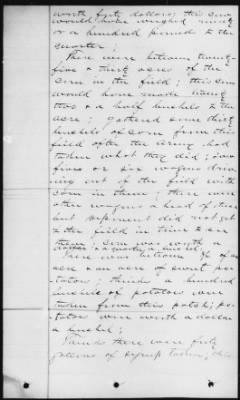 worth forty dollars; this sow
would have weighed ninety
or a hundred pound to the
quarter;
There were between twenty-
five & thirty acres of the
corn in the field; this corn
would have made twenty
two & a half bushels to the
acre; gathered some thirty
bushels of corn from this
field after the army had
taken what they did; saw
five or six wagons driv-
ing out of the field with
corn in them; there were
other wagons ahead of them
but deponent did not get
to the field in time to see
them; corn was worth a
dollar & a quarter a bushel;
There was between ¾ of an
acre & an acre of sweet po-
tatoes; thinks a hundred
bushels of potatoes were
taken from this patch; po-
tatoes were worth a dollar
a bushel;
Thinks there were forty
gallons of syrup taken;